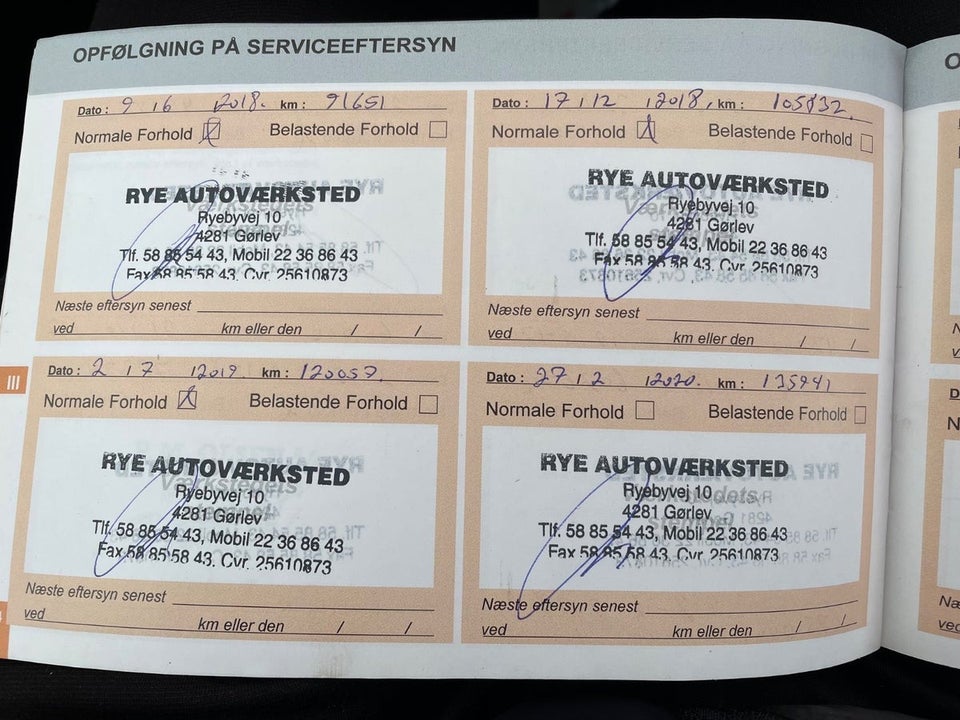 OPFØLGNING PÅ SERVICEEFTERSYN
Dato : 9 / 6 2018. km : 91651
Normale Forhold Belastende Forhold
RYE AUTOVÆRKSTED
Værkstedets
Ryebyvej 10
4281 Gørlev
Tlf. 58 85 54 43, Mobil 22 36 86 43
Fax 58 85 58 43. Cvr. 25610873
Næste eftersyn senest
ved km eller den / /
Dato : 17 / 12 / 2018, km : 105832.
Normale Forhold Belastende Forhold
RYE AUTOVÆRKSTED
Værkstedets
Ryebyvej 10
4281 Gørlev
Tlf. 58 85 54 43, Mobil 22 36 86 43
Fax 58 85 58 43. Cvr. 25610873
Næste eftersyn senest
ved km eller den / /
III
Dato : 2 / 7 / 2019. km : 120057.
Normale Forhold Belastende Forhold
RYE AUTOVÆRKSTED
Værkstedets
Ryebyvej 10
4281 Gørlev
Tlf. 58 85 54 43, Mobil 22 36 86 43
Fax 58 85 58 43. Cvr. 25610873
Næste eftersyn senest
ved km eller den / /
Dato : 27 / 2 / 2020. km : 135941
Normale Forhold Belastende Forhold
RYE AUTOVÆRKSTED
Værkstedets
Ryebyvej 10
4281 Gørlev
stempel
Tlf. 58 85 54 43, Mobil 22 36 86 43
Fax 58 85 58 43. Cvr. 25610873
Næste eftersyn senest
ved km eller den / /